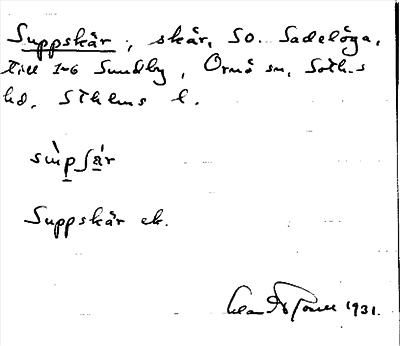 Suppskär, skär, SO. Sadelöga,
till 1-6 Sundby, Ornö sn, Soth.s
hd. Sthlms l.
sùpʃár
Suppskär ek.
1931.